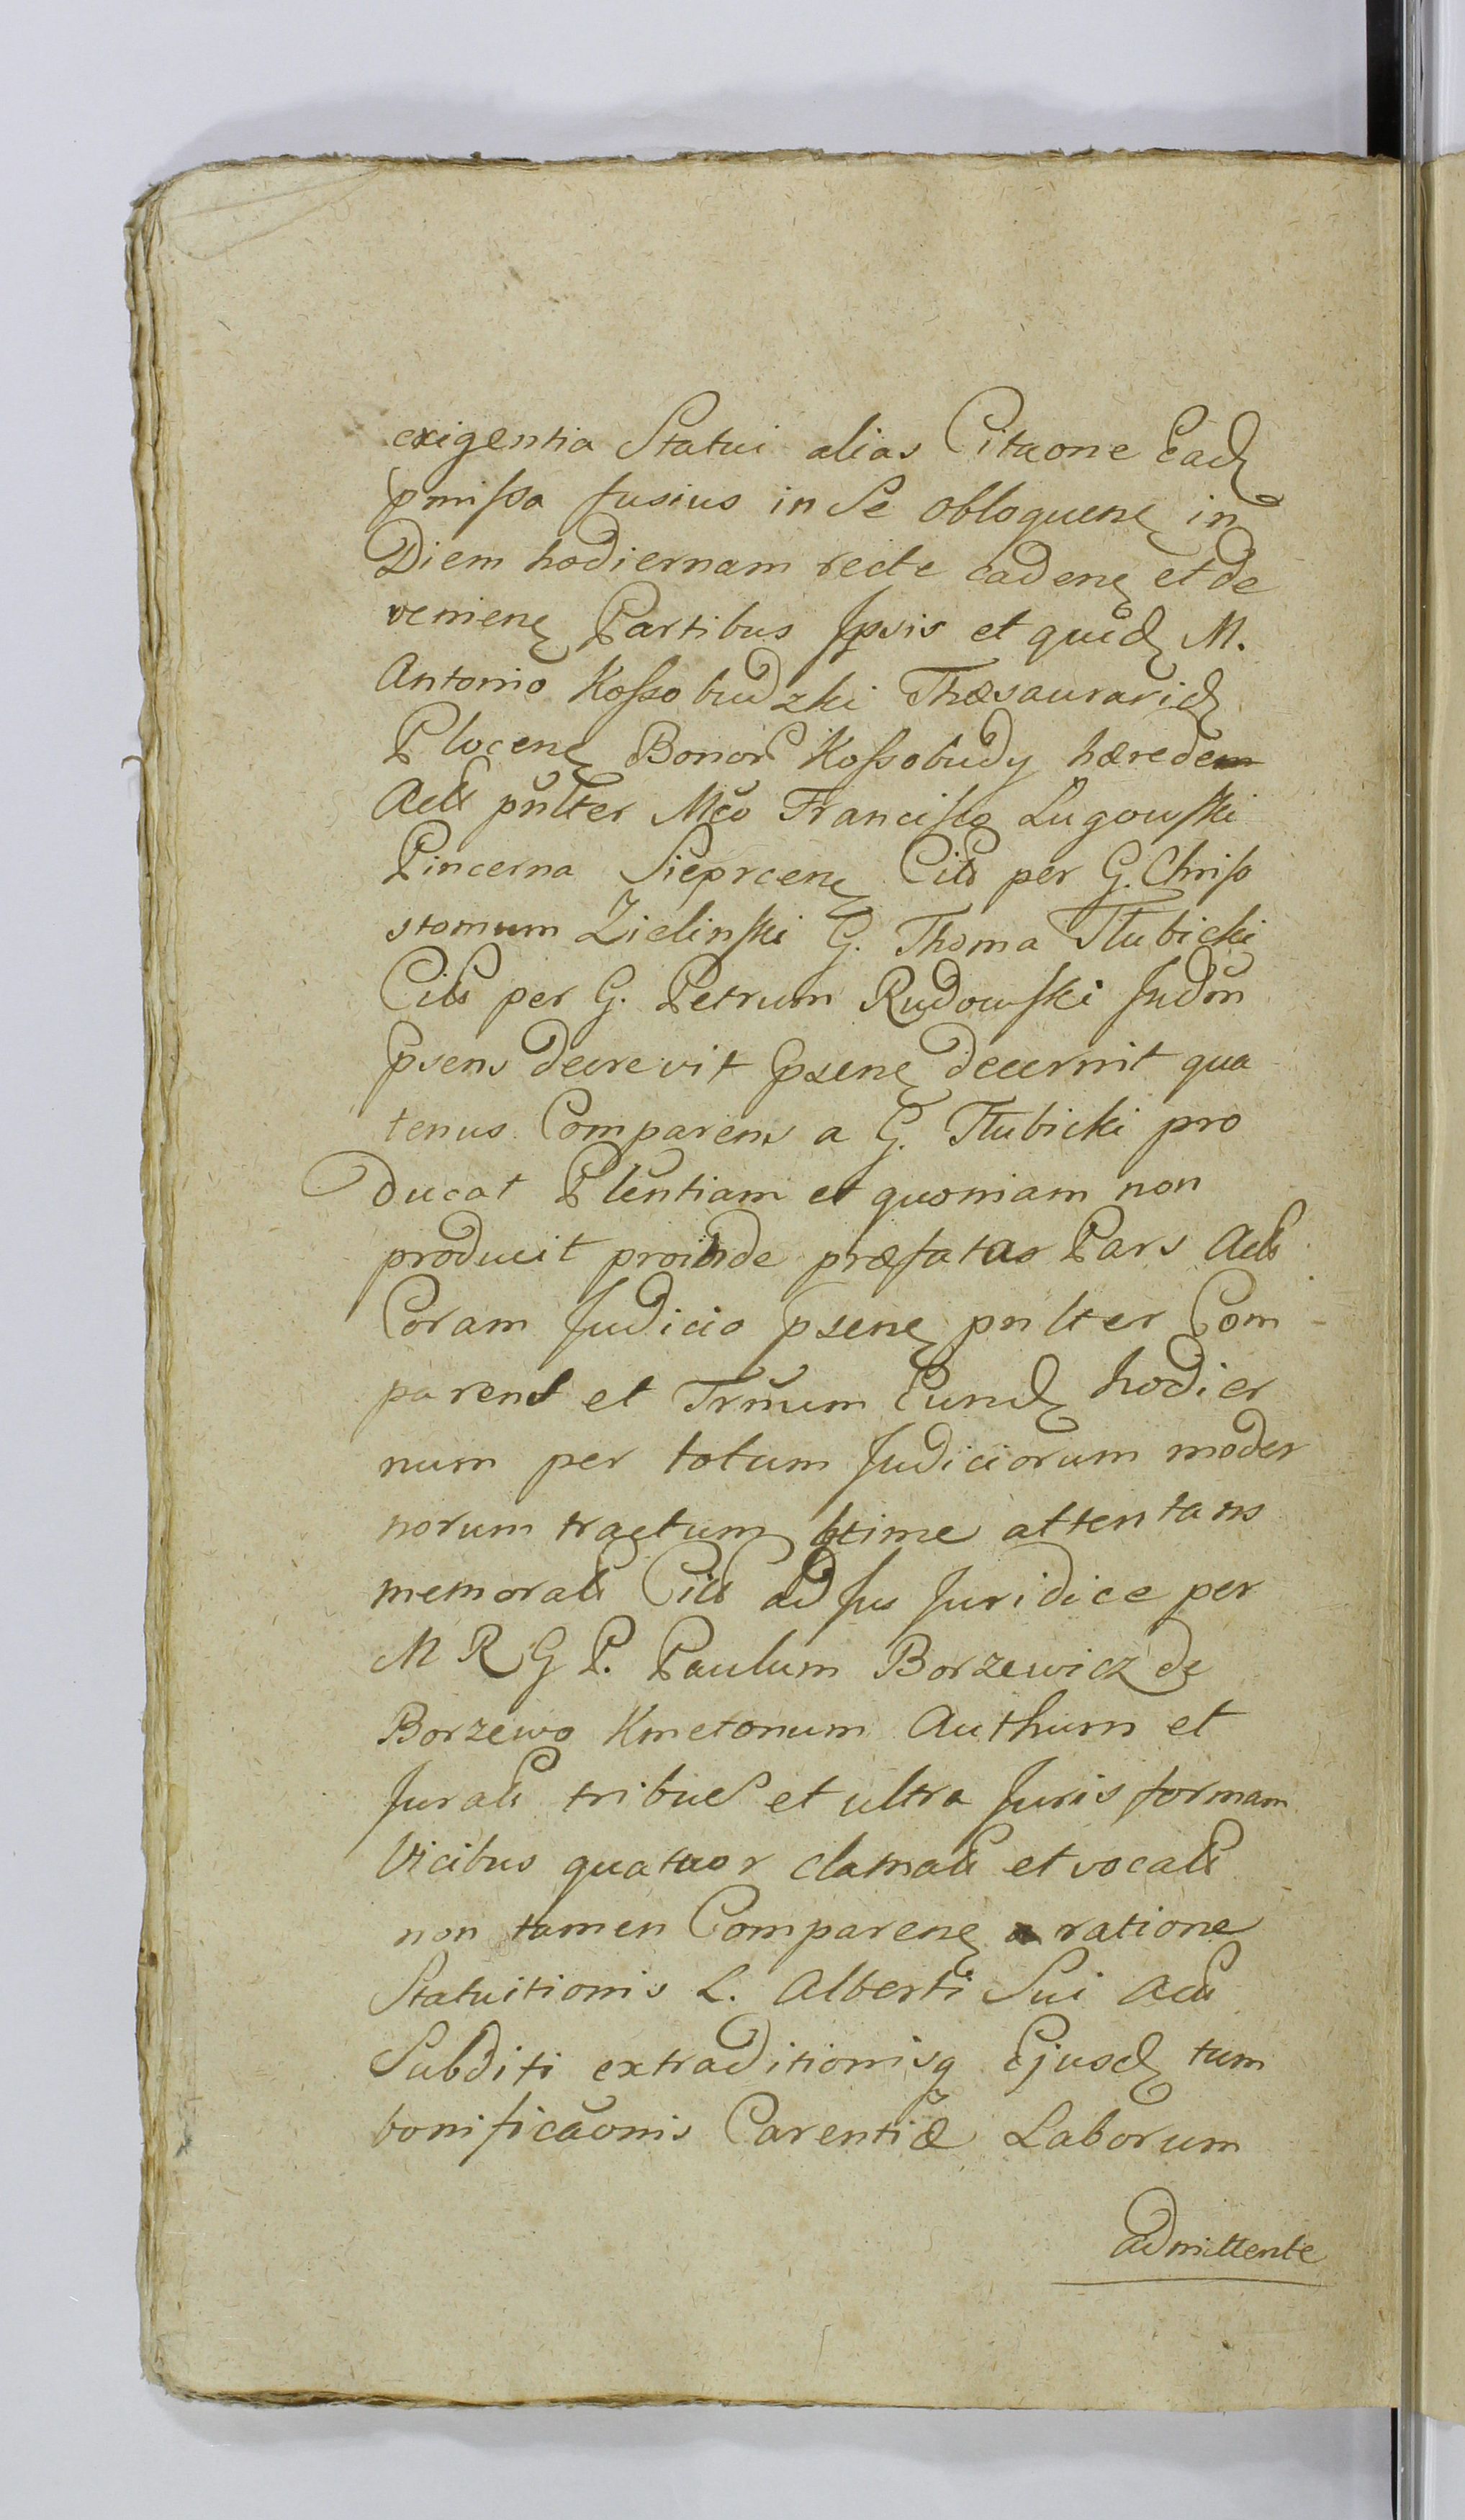 exigentia Statui alias Citaone Ead
pmissa fusius in Se obloquen in
Diem hodiernam recte caden et de
venien Partibus Ipsis et quid M.
Antonio Kossobudzki Thæsaurarid
Plocen Bonor Kossobudy hærede
Act pnlter Mco Francisco Lugowski
Pincerna Sieprcen Citt per G. Chriso
stomum Zielinski G. Thoma Tłubicki
Citt per G. Petrum Rudowski Judm
psens decrevit psen decernit qua
tenus Comparens a G. Tłubicki pro
ducat Plentiam et quoniam non
producit proinde præfatas Pars Act
Coram Judicio psen pnlter Com-
parens et Trnum Eund hodier
num per totum Judiciorum moder
norum tractum ltime attentans
memorat Citt ad Jus Juridice per
M R G P. Paulum Borzewicz de
Borzewo Kmetonum Authum et
Jurat tribus et ultra Juris formam
Vicibus quatuor clamat et vocat
non tamen Comparen ratione
Statuitionis L. Alberti Sui Act
Subditi extraditionisq Ejusd tum
bonificaonis Carentiæ Laborum
admittente